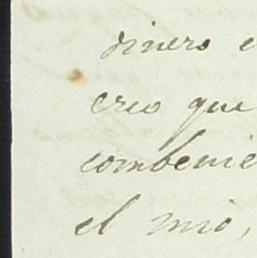 dinero e
creo que
combenie
el mio,